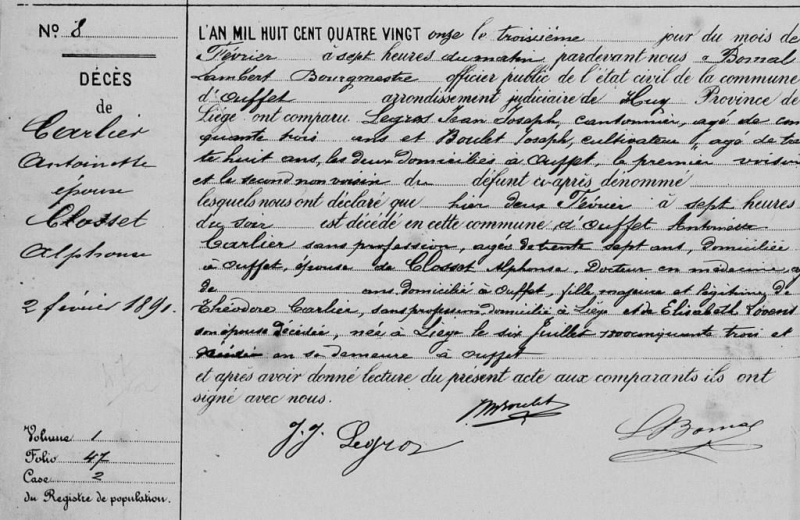 Nº 8
DÉCÈS
de
Carlier
Antoinette
épouse
Closset
Alphonse
2 février 1891.
Volume 1
Folio 47
Case 2
du Registre de population.
L'AN MIL HUIT CENT QUATRE VINGT onze le troisième jour du mois de
Février à sept heures du matin pardevant nous Bomal
Lambert Bourgmestre officier public de l'état civil de la commune
d'Ouffet arrondissement judiciaire de Huy Province de
Liège ont comparu Legros Jean Joseph, cantonnier, agé de cin
quante trois ans et Boulet Joseph, cultivateur, agé de tren
te huit ans, les deux domiciliés à Ouffet, le premier voisin
et le second non voisin du défunt ci-après dénommé
lesquels nous ont déclaré que hier deux Février à sept heures
du soir est décédé en cette commune d'Ouffet Antoinette
Carlier sans profession, agée de trente sept ans, domiciliée
à Ouffet, épouse de Closset Alphonse, Docteur en médecine, agé
de ans domicilié à Ouffet, fille majeure et légitime de
Théodore Carlier, sans profession domicilié à Liège et de Elisabeth
son épouse décédée, née à Liege le six Juillet 1800 cinquante trois et
décédée en sa demeure à Ouffet
et après avoir donné lecture du présent acte aux comparants ils ont
signé avec nous.
J. J. Legros
Boulet
L Bomal